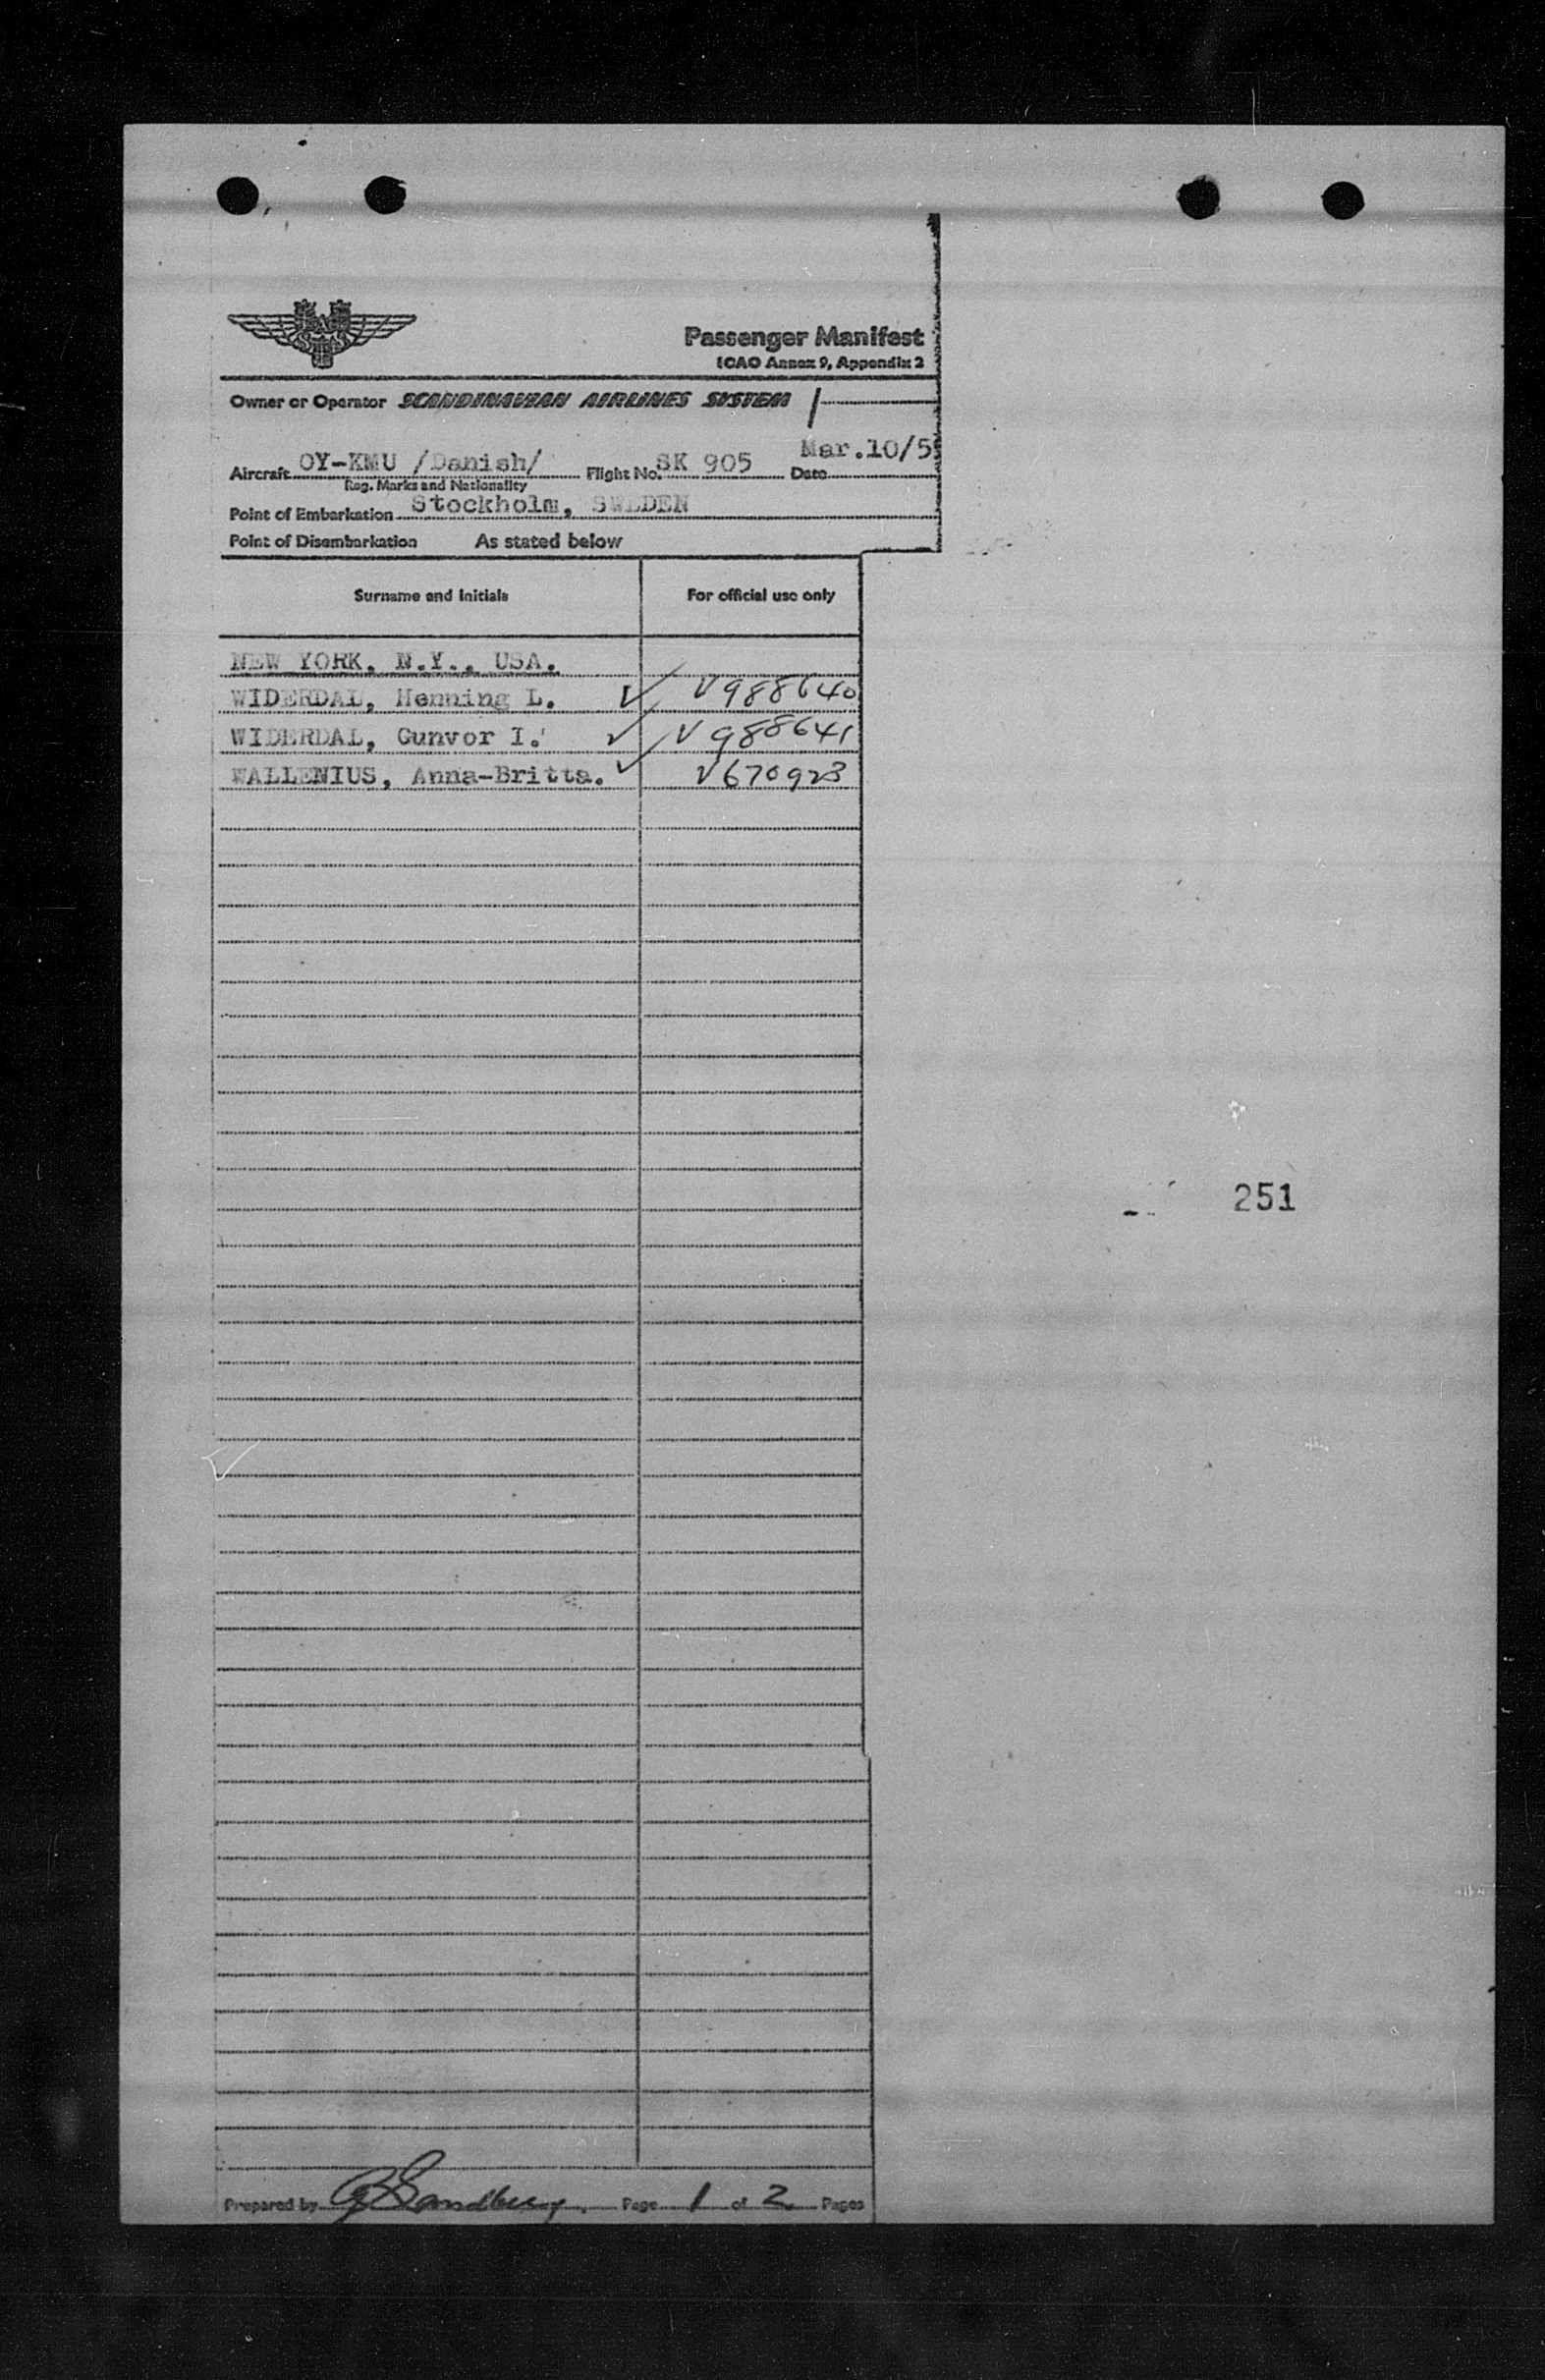 SAS
Passenger Manifest
ICAO Annex 9, Appendix 2
Owner or Operator SCANDINAVIAN AIRLINES SYSTEM
Aircraft OY-KMU /Danish/ Flight No. SK 905 Date Mar.10/5
Reg. Marks and Nationality
Point of Embarkation Stockholm, SWEDEN
Point of Disembarkation As stated below
Surname and Initials For official use only
NEW YORK, N.Y., USA.
WIDERDAL, Henning L. ✓ V988640
WIDERDAL, Gunvor I. ✓ V988641
WALLENIUS, Anna-Britta. ✓ V670923
251
Prepared by Sandberg. Page 1 of 2 Pages